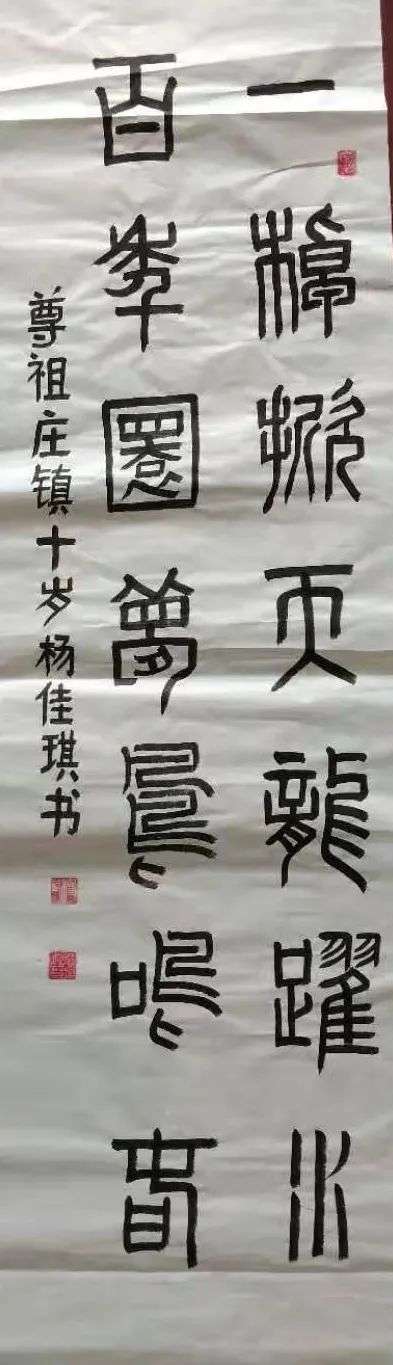 一天龍躍水
百年圜夢鳳鳴春
尊祖庄镇十岁杨佳琪书